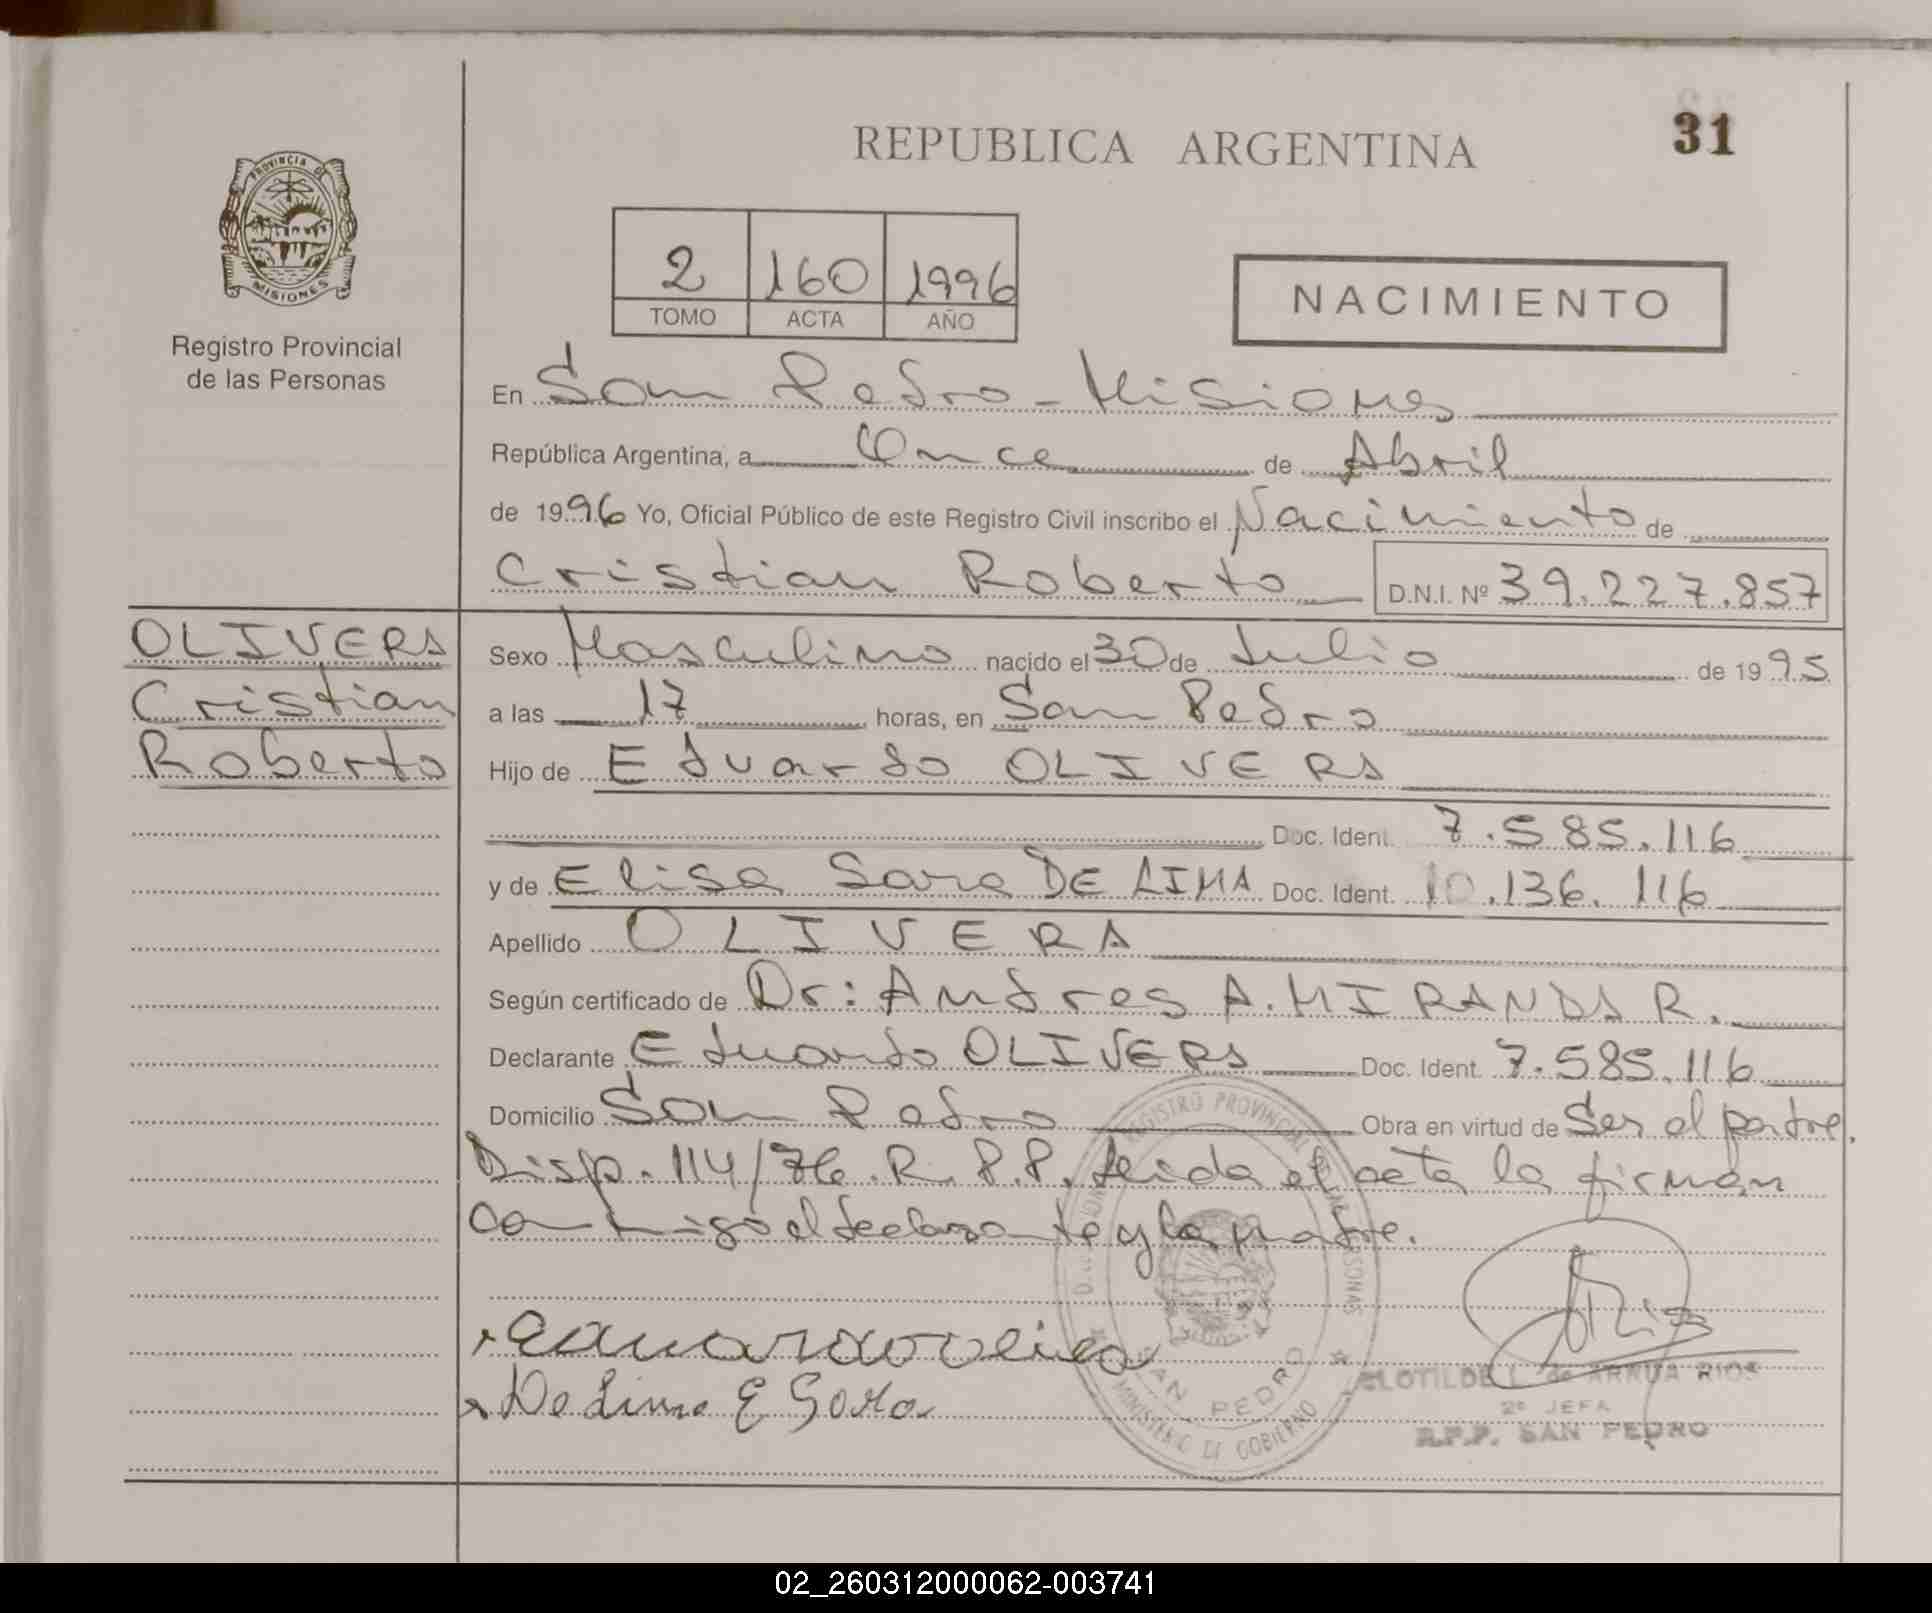 REPUBLICA ARGENTINA
31
PROVINCIA DE
MISIONES
Registro Provincial
de las Personas
2 160 1996
TOMO ACTA AÑO
NACIMIENTO
En San Pedro - Misiones
República Argentina, a Once de Abril
de 1996 Yo, Oficial Público de este Registro Civil inscribo el Nacimiento de
Cristian Roberto D.N.I. Nº 39.227.857
OLIVERA
Cristian
Roberto
Sexo Masculino nacido el 30 de Julio de 1995
a las 17 horas, en San Pedro
Hijo de Eduardo OLIVERA
Doc. Ident. 7.585.116
y de Elisa Sara DE LIMA Doc. Ident. 10.136.116
Apellido OLIVERA
Según certificado de Dr: Andres A. MIRANDA R.
Declarante Eduardo OLIVERA Doc. Ident. 7.585.116
Domicilio San Pedro Obra en virtud de Ser el padre.
Disp. 114/76. R.P.P. Leida el acta la firman
conmigo el declarante y la madre.
De Lima E Sara
REGISTRO PROVINCIAL DE LAS PERSONAS
SAN PEDRO
MINISTERIO DE GOBIERNO
CLOTILDE L. de ARRUA RIOS
2º JEFA
R.P.P. SAN PEDRO
02_260312000062-003741